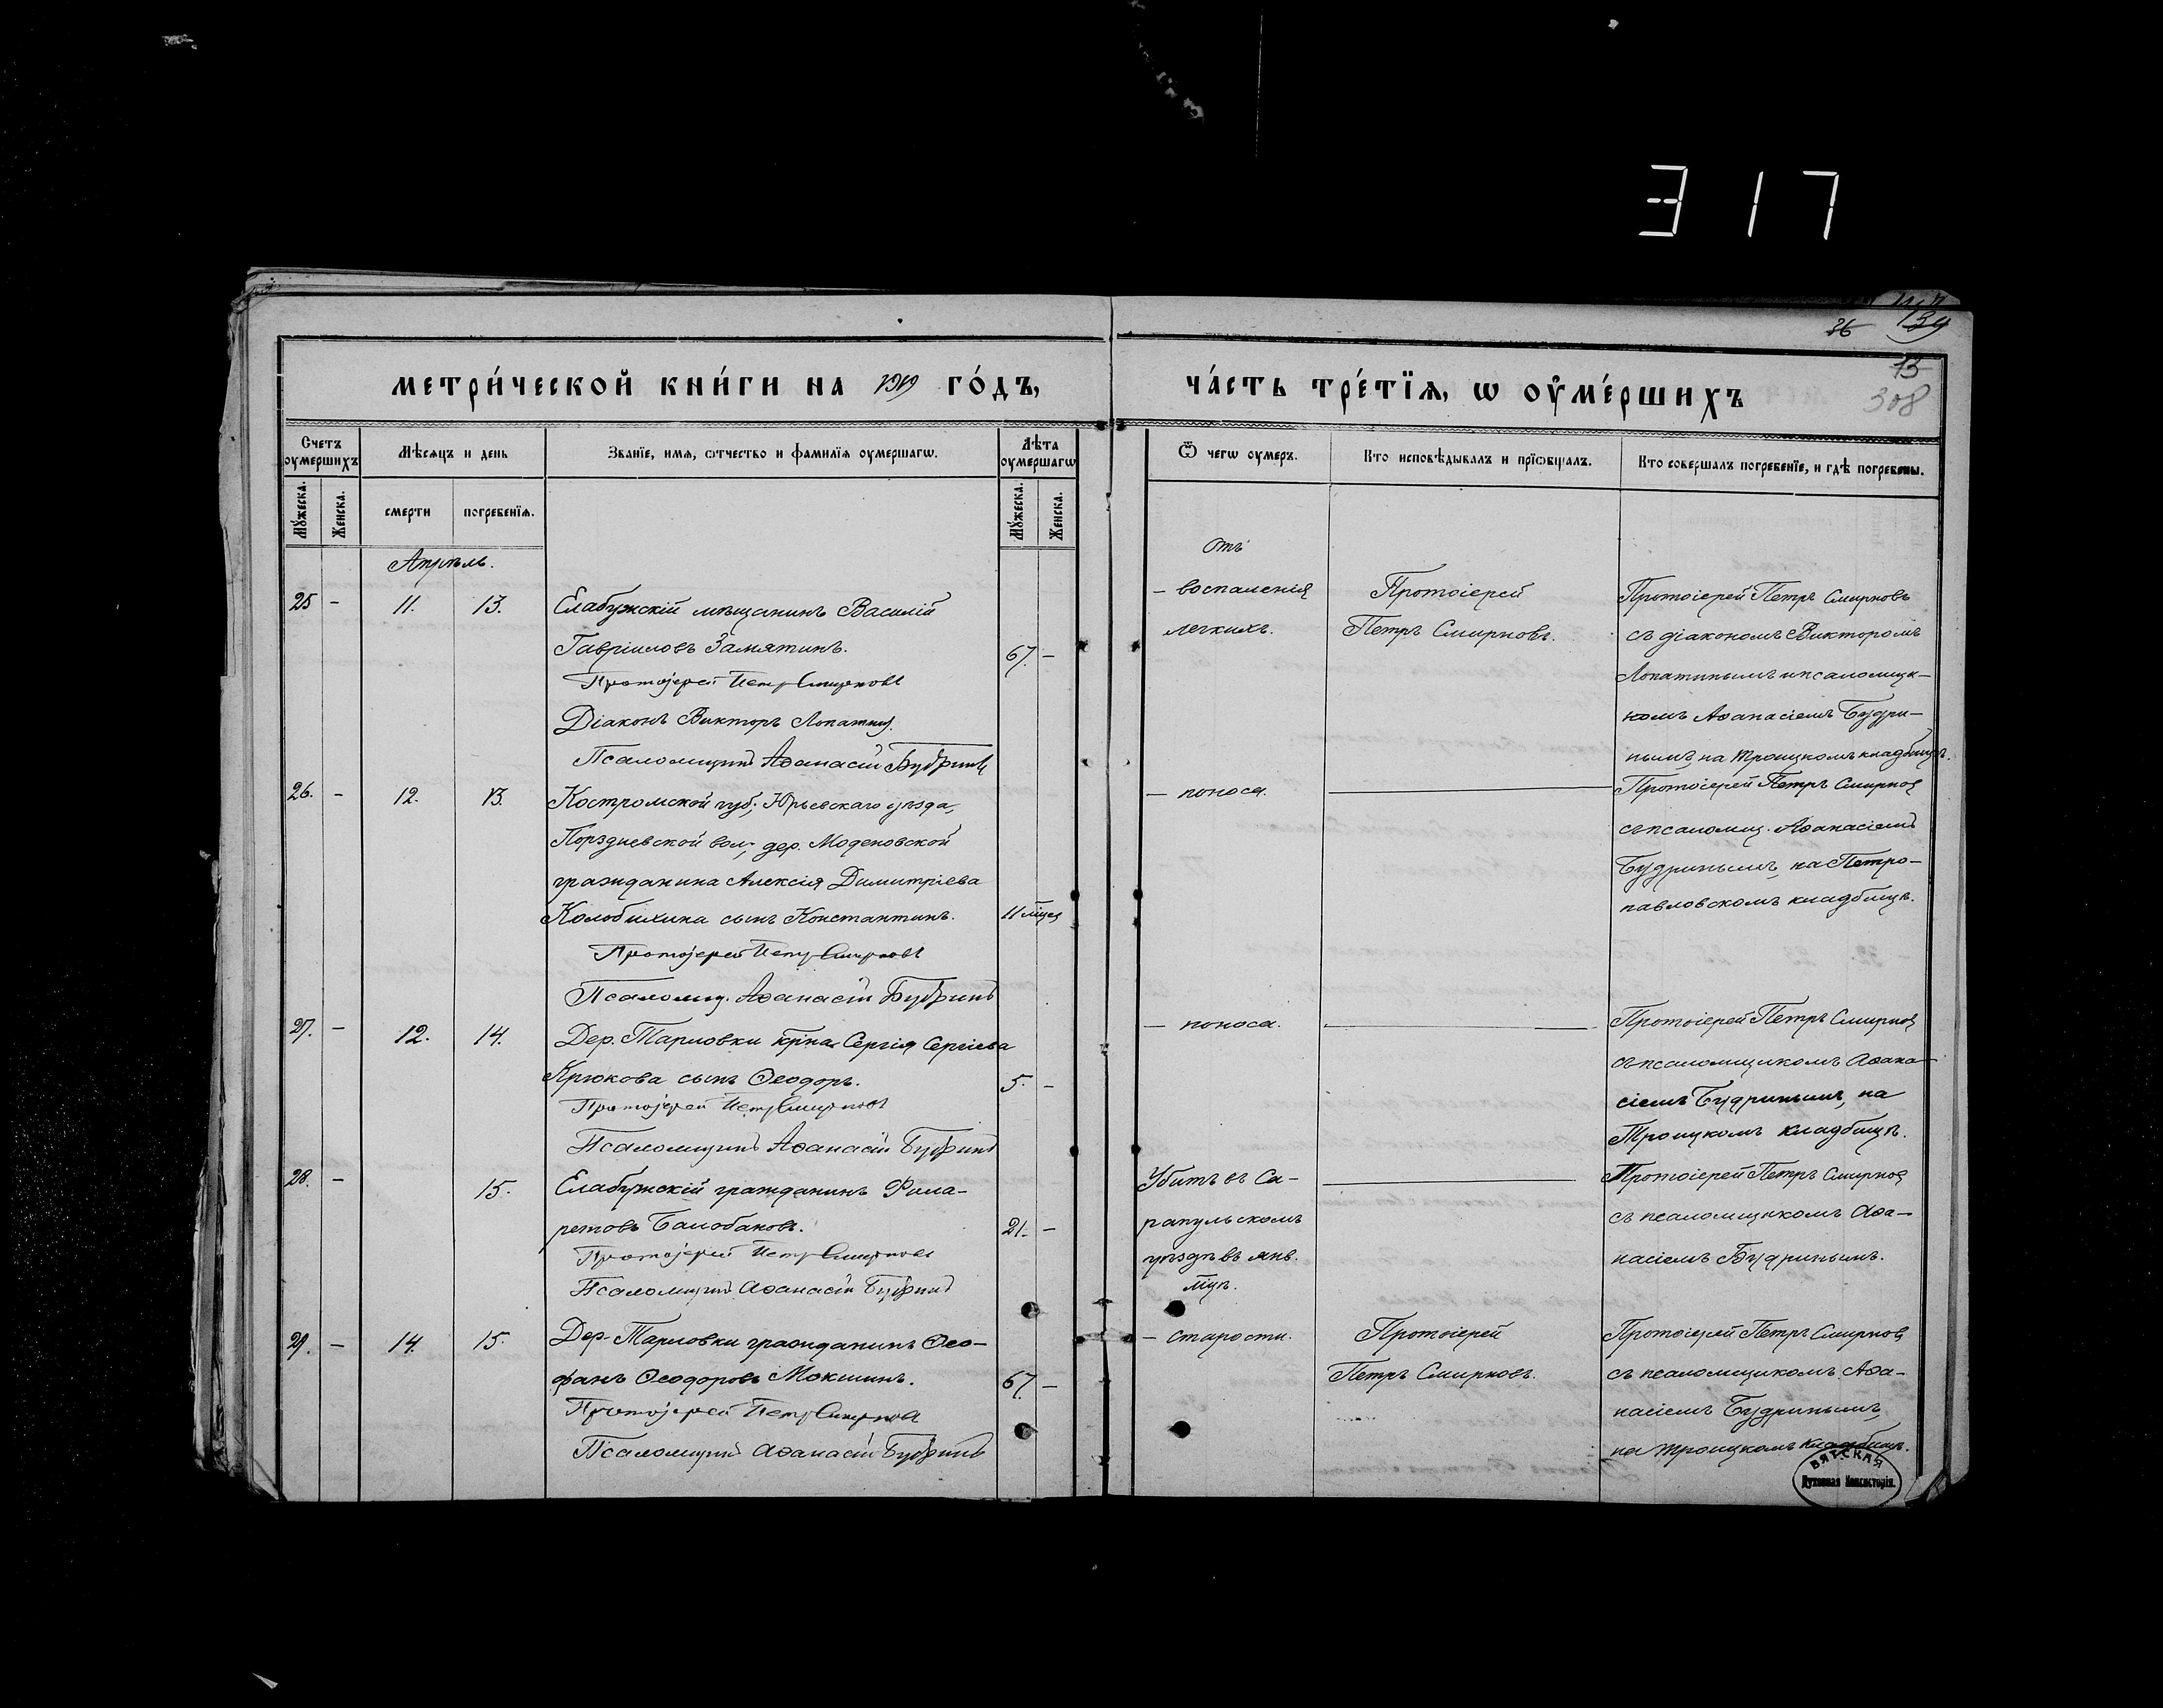 317
36
139
13
308
МЕТРИ́ЧЕСКОЙ КНИ́ГИ НА 1919 ГО́ДЪ,
ЧА́СТЬ ТРЕ́ТЇѦ, Ѡ ОУ҆МЕ́РШИХЪ
Счетъ оумершихъ
Мѣсѧцъ и день
Званїе, имѧ, ѡтчество и фамилїѧ оумершагѡ.
Лѣта оумершагѡ
Ѿ чегѡ оумеръ.
Кто исповѣдывалъ и прїѡбщалъ.
Кто совершалъ погребенїе, и гдѣ погребены.
Мужеска.
Женска.
смерти
погребенїѧ.
Мужеска.
Женска.
Апрѣль.
25 – 11. 13.
Елабужскій мѣщанинъ Василій
Гавріиловъ Замятинъ.
67. –
Протоіерей Петръ Смирновъ
Діаконъ Викторъ Лопатин
Псаломщикъ Аѳанасій Будринъ
Отъ
– воспаленія
легкихъ.
Протоіерей
Петръ Смирновъ.
Протоіерей Петръ Смирновъ
съ діакономъ Викторомъ
Лопатинымъ и псаломщи–
комъ Аѳанасіемъ Будри–
нымъ, на Троицкомъ кладбищѣ.
26. – 12. 13.
Костромской губ., Юрьевскаго уѣзда,
вол., дер. Моденовской
гражданина Алексія Димитріева
Колобихина сынъ Константинъ.
11 мѣся
Протоіерей Петръ Смирновъ
Псаломщ. Аѳанасій Будринъ
– поноса.
Протоіерей Петръ Смирнов
съ псаломщ. Аѳанасіемъ
Будринымъ, на Петро–
павловскомъ кладбищѣ.
27. – 12. 14.
Дер. Тарловки кр̃на Сергія Сергіева
Крюкова сынъ Ѳеодоръ.
5. –
Протоіерей Петръ Смирновъ
Псаломщикъ Аѳанасій Будринъ
– поноса.
Протоіерей Петръ Смирнов
съ псаломщикомъ Аѳана–
сіемъ Будринымъ, на
Троицкомъ кладбищѣ.
28. – 15.
Елабужскій гражданинъ Фила–
ретовъ Балобановъ.
21. –
Протоіерей Петръ Смирновъ
Псаломщикъ Аѳанасій Будринъ
Убитъ въ Са–
рапульскомъ
уѣздѣ въ янв.
мцѣ.
Протоіерей Петръ Смирнов
съ псаломщикомъ Аѳа–
насіемъ Будринымъ.
29. – 14. 15.
Дер. Тарловки гражданинъ Ѳео–
фанъ Ѳеодоровъ Мокшинъ.
67 –
Протоіерей Петръ Смирновъ
Псаломщикъ Аѳанасій Будринъ
– старости.
Протоіерей
Петръ Смирновъ.
Протоіерей Петръ Смирнов
съ псаломщикомъ Аѳа–
насіемъ Будринымъ,
на Троицкомъ кладбищѣ.
ВЯТСКАЯ
Духовная Консисторія.